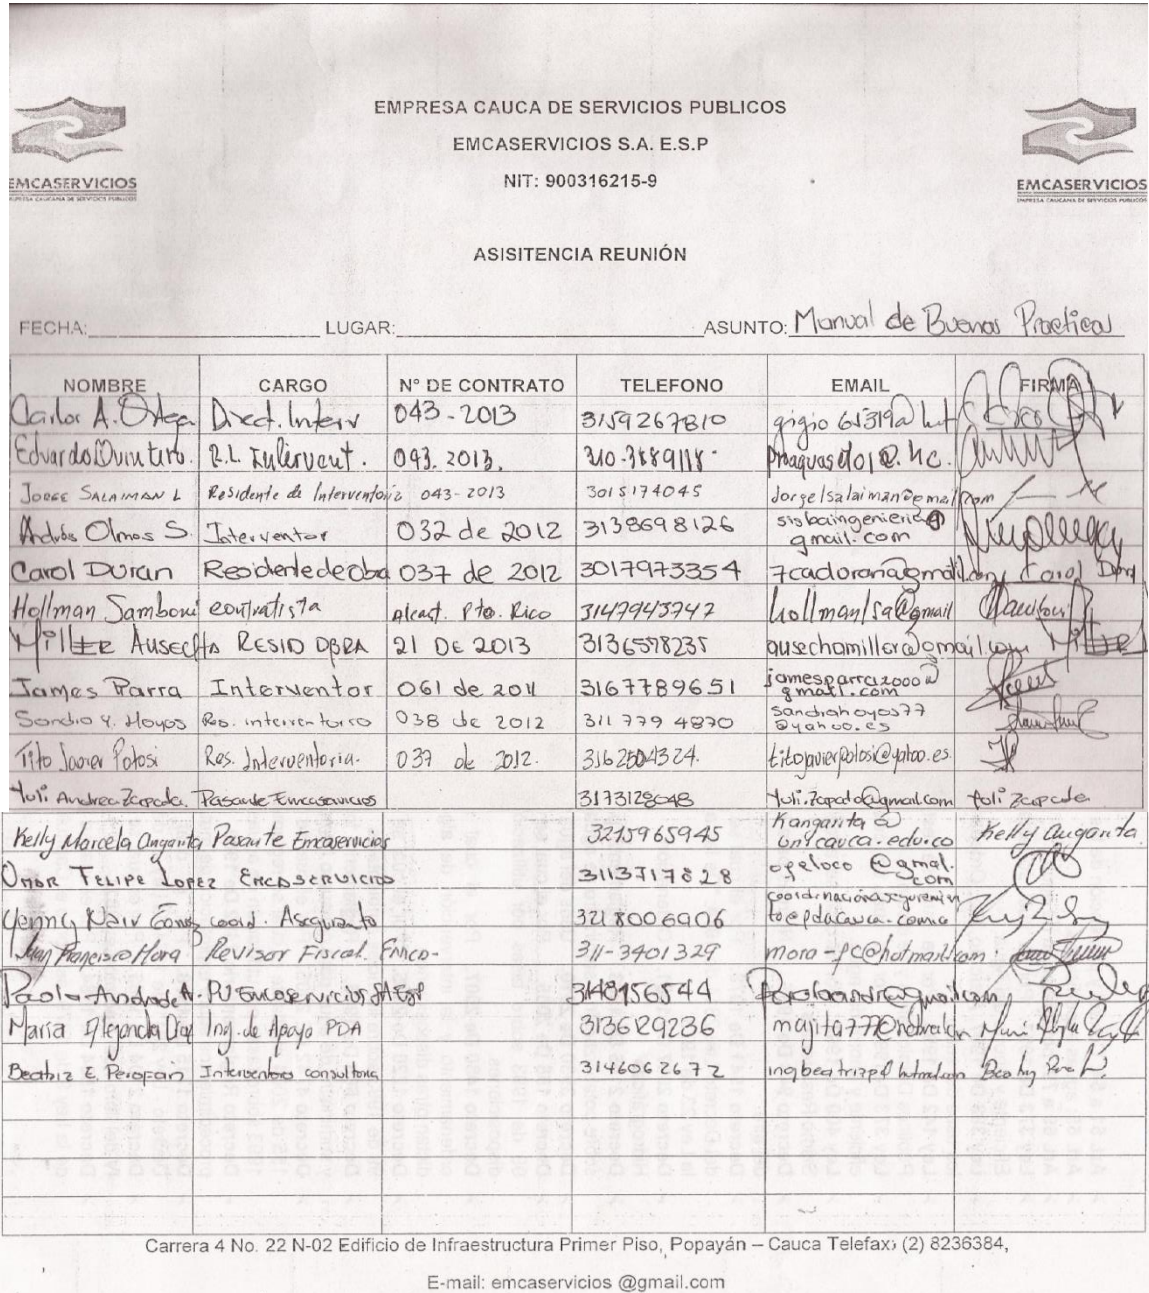 EMPRESA CAUCA DE SERVICIOS PUBLICOS
EMCASERVICIOS S.A. E.S.P
NIT: 900316215-9
EMCASERVICIOS
EMPRESA CAUCANA DE SERVICIOS PUBLICOS
EMCASERVICIOS
EMPRESA CAUCANA DE SERVICIOS PUBLICOS
ASISITENCIA REUNIÓN
FECHA: LUGAR: ASUNTO: Manual de Buenas Practicas
NOMBRE CARGO N° DE CONTRATO TELEFONO EMAIL FIRMA
Carlos A. Ortega Direct. Interv 043-2013 3159267810
Eduardo Quintero. R.L. Intervent. 043. 2013. 310-3889118-
JORGE SALAIMAN L Residente de Interventoria 043-2013 3015174045 jorgelsalaiman@gmail.com
Andrés Olmos S. Interventor 032 de 2012 3138698126 sisbaingenieria@
gmail.com
Carol DURAN Residente de oba 037 de 2012 3017973354 Carol Duran
Hollman Samboni contratista Alcant. Pto. Rico 3147943742 hollmanlsa@gmail
MillER AUSECHA RESID OBRA 21 DE 2013 3136598235 ausechamiller@gmail.com Miller
James Parra Interventor 061 de 2011 3167789651 jamesparra2000@
gmail.com
Sandra Y. Hoyos Res. interventoria 038 de 2012 311 779 4870 sandrahoyos77
@yahoo.es
Tito Javier Potosi Res. Interventoria. 037 de 2012. 3162504324. titojavierpotosi@yahoo.es
Yuli Andrea Zapata. Pasante Emcaservicios 3173128048 Yuli.Zapata@gmail.com Yuli Zapata
Kelly Marcela Angarita Pasante Emcaservicios 3215965945 Kangarita@
unicauca.edu.co Kelly Angarita
OMAR FELIPE LOPEZ EMCASERVICIOS 3113717828 ofeloco @gmal.
com
Yenny coord. Aseguramto 3218006906
Juan Francisco Mora Revisor Fiscal. Emco- 311-3401329 mora-fc@hotmail.com
Paola Andrade N. PU Emcaservicios SAESP 3148956544 Paolaandra@gmail.com
Maria Alejandra Diaz Ing. de Apoyo PDA 313629236
Beatriz E. Perafan Interventora consultoria 3146062672
Carrera 4 No. 22 N-02 Edificio de Infraestructura Primer Piso, Popayán – Cauca Telefax: (2) 8236384,
E-mail: emcaservicios @gmail.com